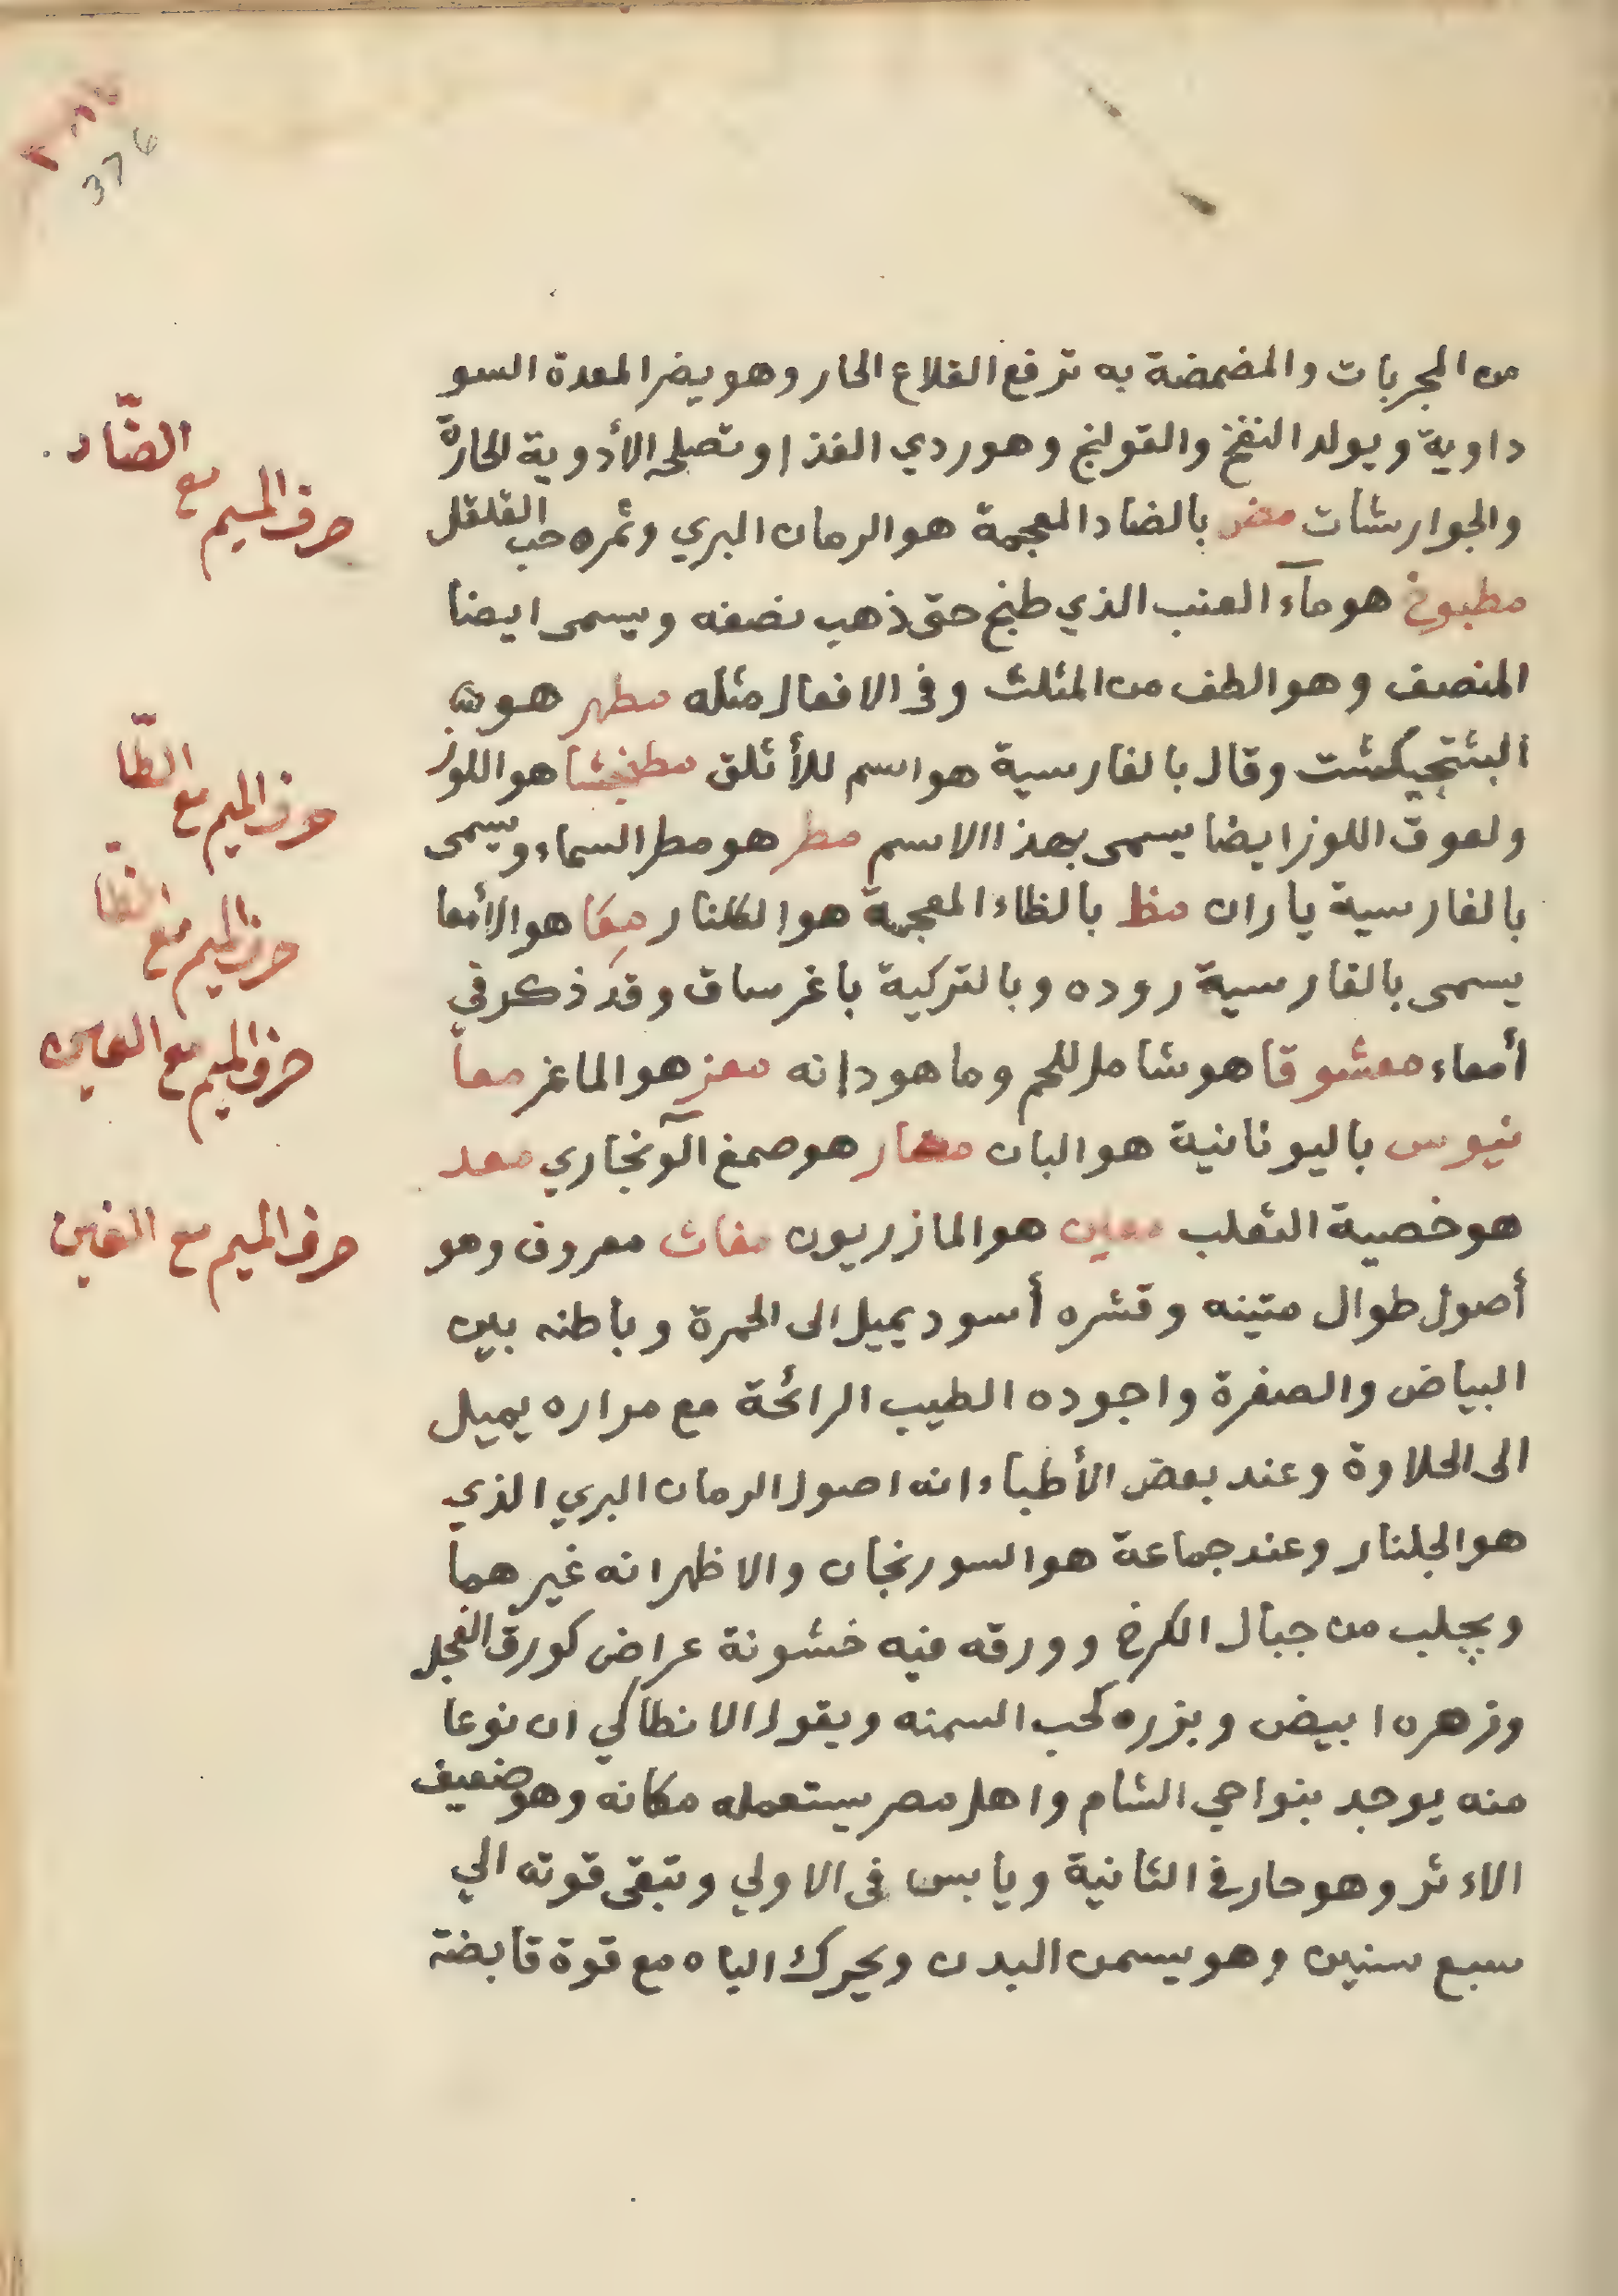 376
من المجربات والمضمضة به ترفع القلاع الحار وهو يضر المعدة السو
داوية ويولد النفخ والقولنج وهو ردي الغذا وتصلحه الأدوية الحارة
والجوارشات مض بالضاد المعجمة هو الرمان البري وثمره حب القلقل
مطبوخ هو ماء العنب الذي طبخ حتى ذهب نصفه ويسمى ايضا
المنصف وهو الطف من المثلث وفى الافعال مثله مطهر هو
البنتجيكشت وقال بالفارسية هو اسم للأثلق مطنجشا هو اللوز
ولعوق اللوز ايضا يسمى بهذا الاسم مطر هو مطر السماء ويسمى
بالفارسية ياران مظ بالظاء المعجمة هو الكلنار مِعَا هو الأمعا
يسمى بالفارسية روده وبالتركية باغرساق وقد ذكر في
أمعاء معشوقا هو شامل للحم وما هودانه معز هو الماعز معا
نيوس باليونانية هو البان مغار هو صمغ الآونجاري معد
هو خصية الثعلب معين هو المازريون مغاث معروف وهو
أصول طوال متينه وقشره أسود يميل الى الحمرة وباطنه بين
البياض والصفرة واجوده الطيب الرائحة مع مراره يميل
الى الحلاوة وعند بعض الأطباء انه اصول الرمان البري الذي
هو الجلنار وعند جماعة هو السورنجان والاظهر انه غير هما
ويجلب من جبال الكرخ وورقه فيه خشونة عراض كورق الفجل
وزهره ابيض وبزره كحب السمنه ويقول الانطاكي ان نوعا
منه يوجد بنواحي الشام واهل مصر يستعمله مكانه وهو ضعيف
الاءثر وهو حار في الثانية ويابس فى الاولي وتبقى قوته الي
سبع سنين وهو يسمن البدن ويحرك الباه مع قوة قابضة
حرف الميم مع الضّاد
حرف الميم مع الطّا
حرف الميم مع الظّا
حرف الميم مع العين
حرف الميم مع الغين